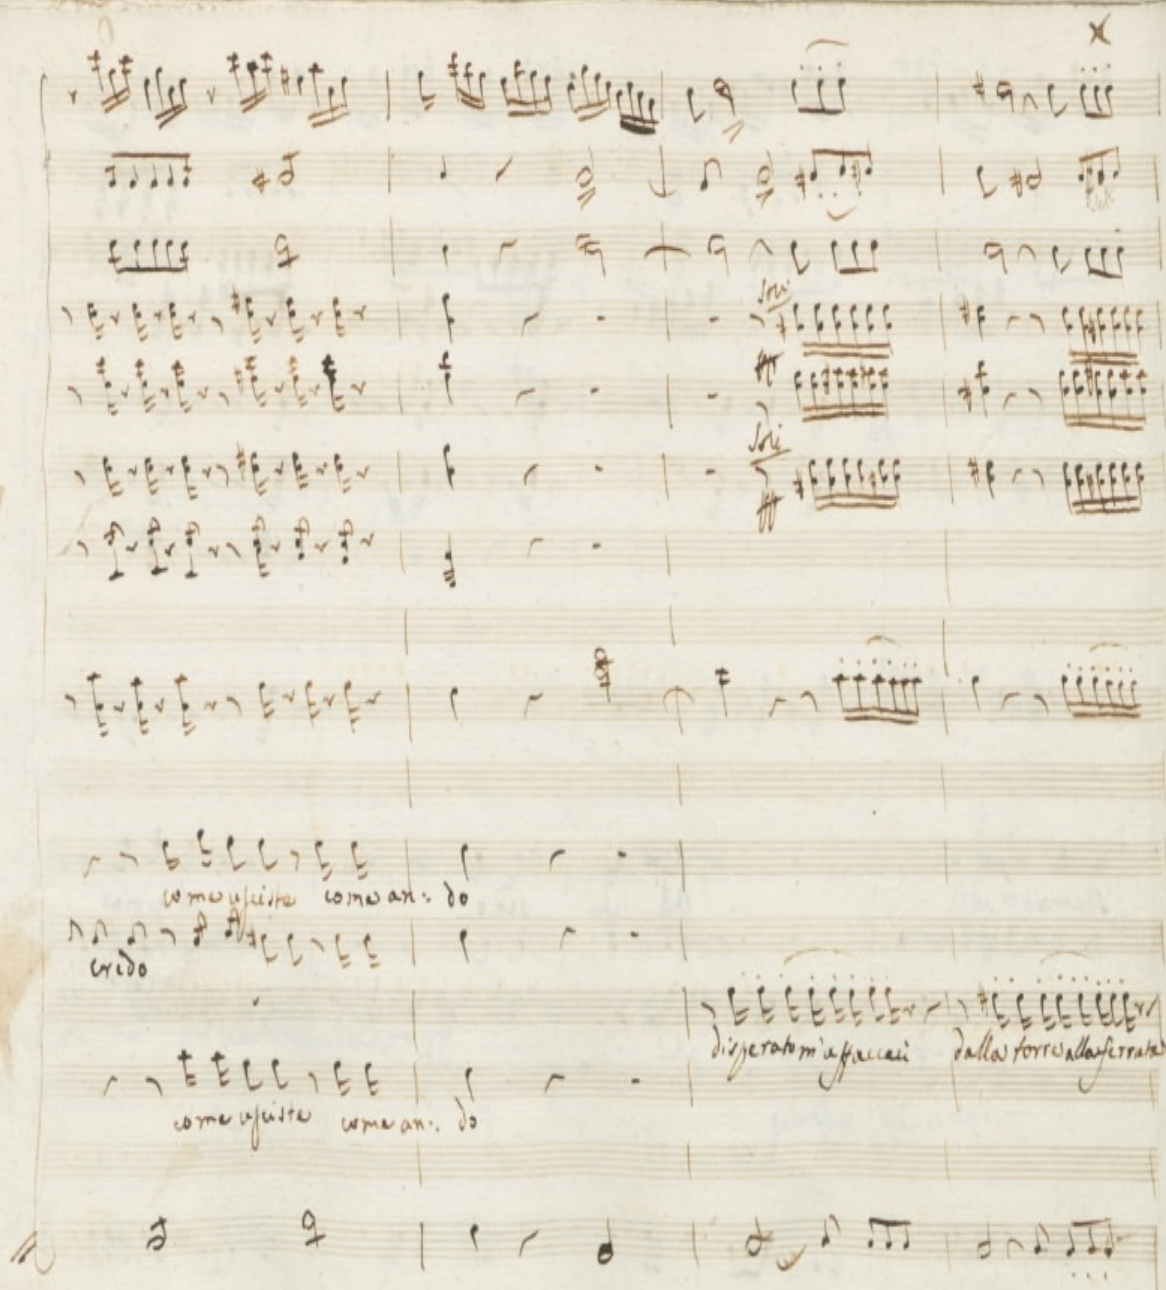 Soli
ff
Soli
ff
come usciste come an: do
credo
disperato m'affacciai dalla torre alla ferrata
come usciste come an: do